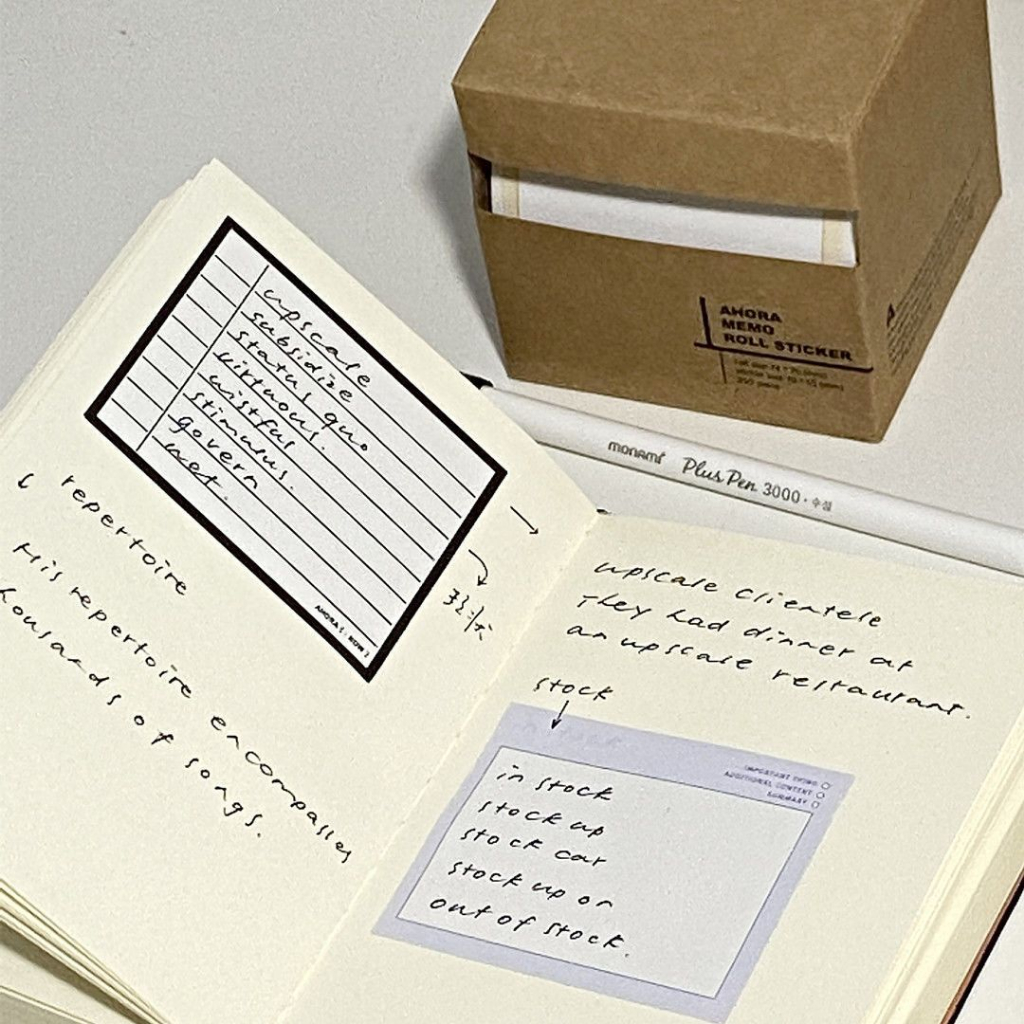 upscale
subsidize
status quo
virtuous.
wistful
stimulus.
govern
AHORA [ : NOW ]
repertoire
His repertoire encompasses
thousands of songs.
upscale clientele
They had dinner at
an upscale restaurant.
stock
IMPORTANT THING
ADDITIONAL CONTENT
SUMMARY
in stock
stock up
stock car
stock up on
out of stock.
AHORA
MEMO
ROLL STICKER
monami Plus Pen 3000 · 수성